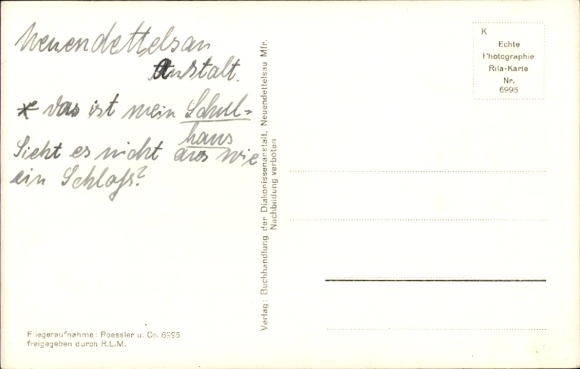 Neuendettelsau
Anstalt.
* das ist mein Schul-
haus
Sieht es nicht aus wie
ein Schloß?
Fliegeraufnahme: Roessler u. Co. 6995
freigegeben durch R.L.M.
Verlag: Buchhandlung der Diakonissenanstalt, Neuendettelsau Mfr.
Nachbildung verboten
K
Echte
Photographie
Rila-Karte
Nr.
6995